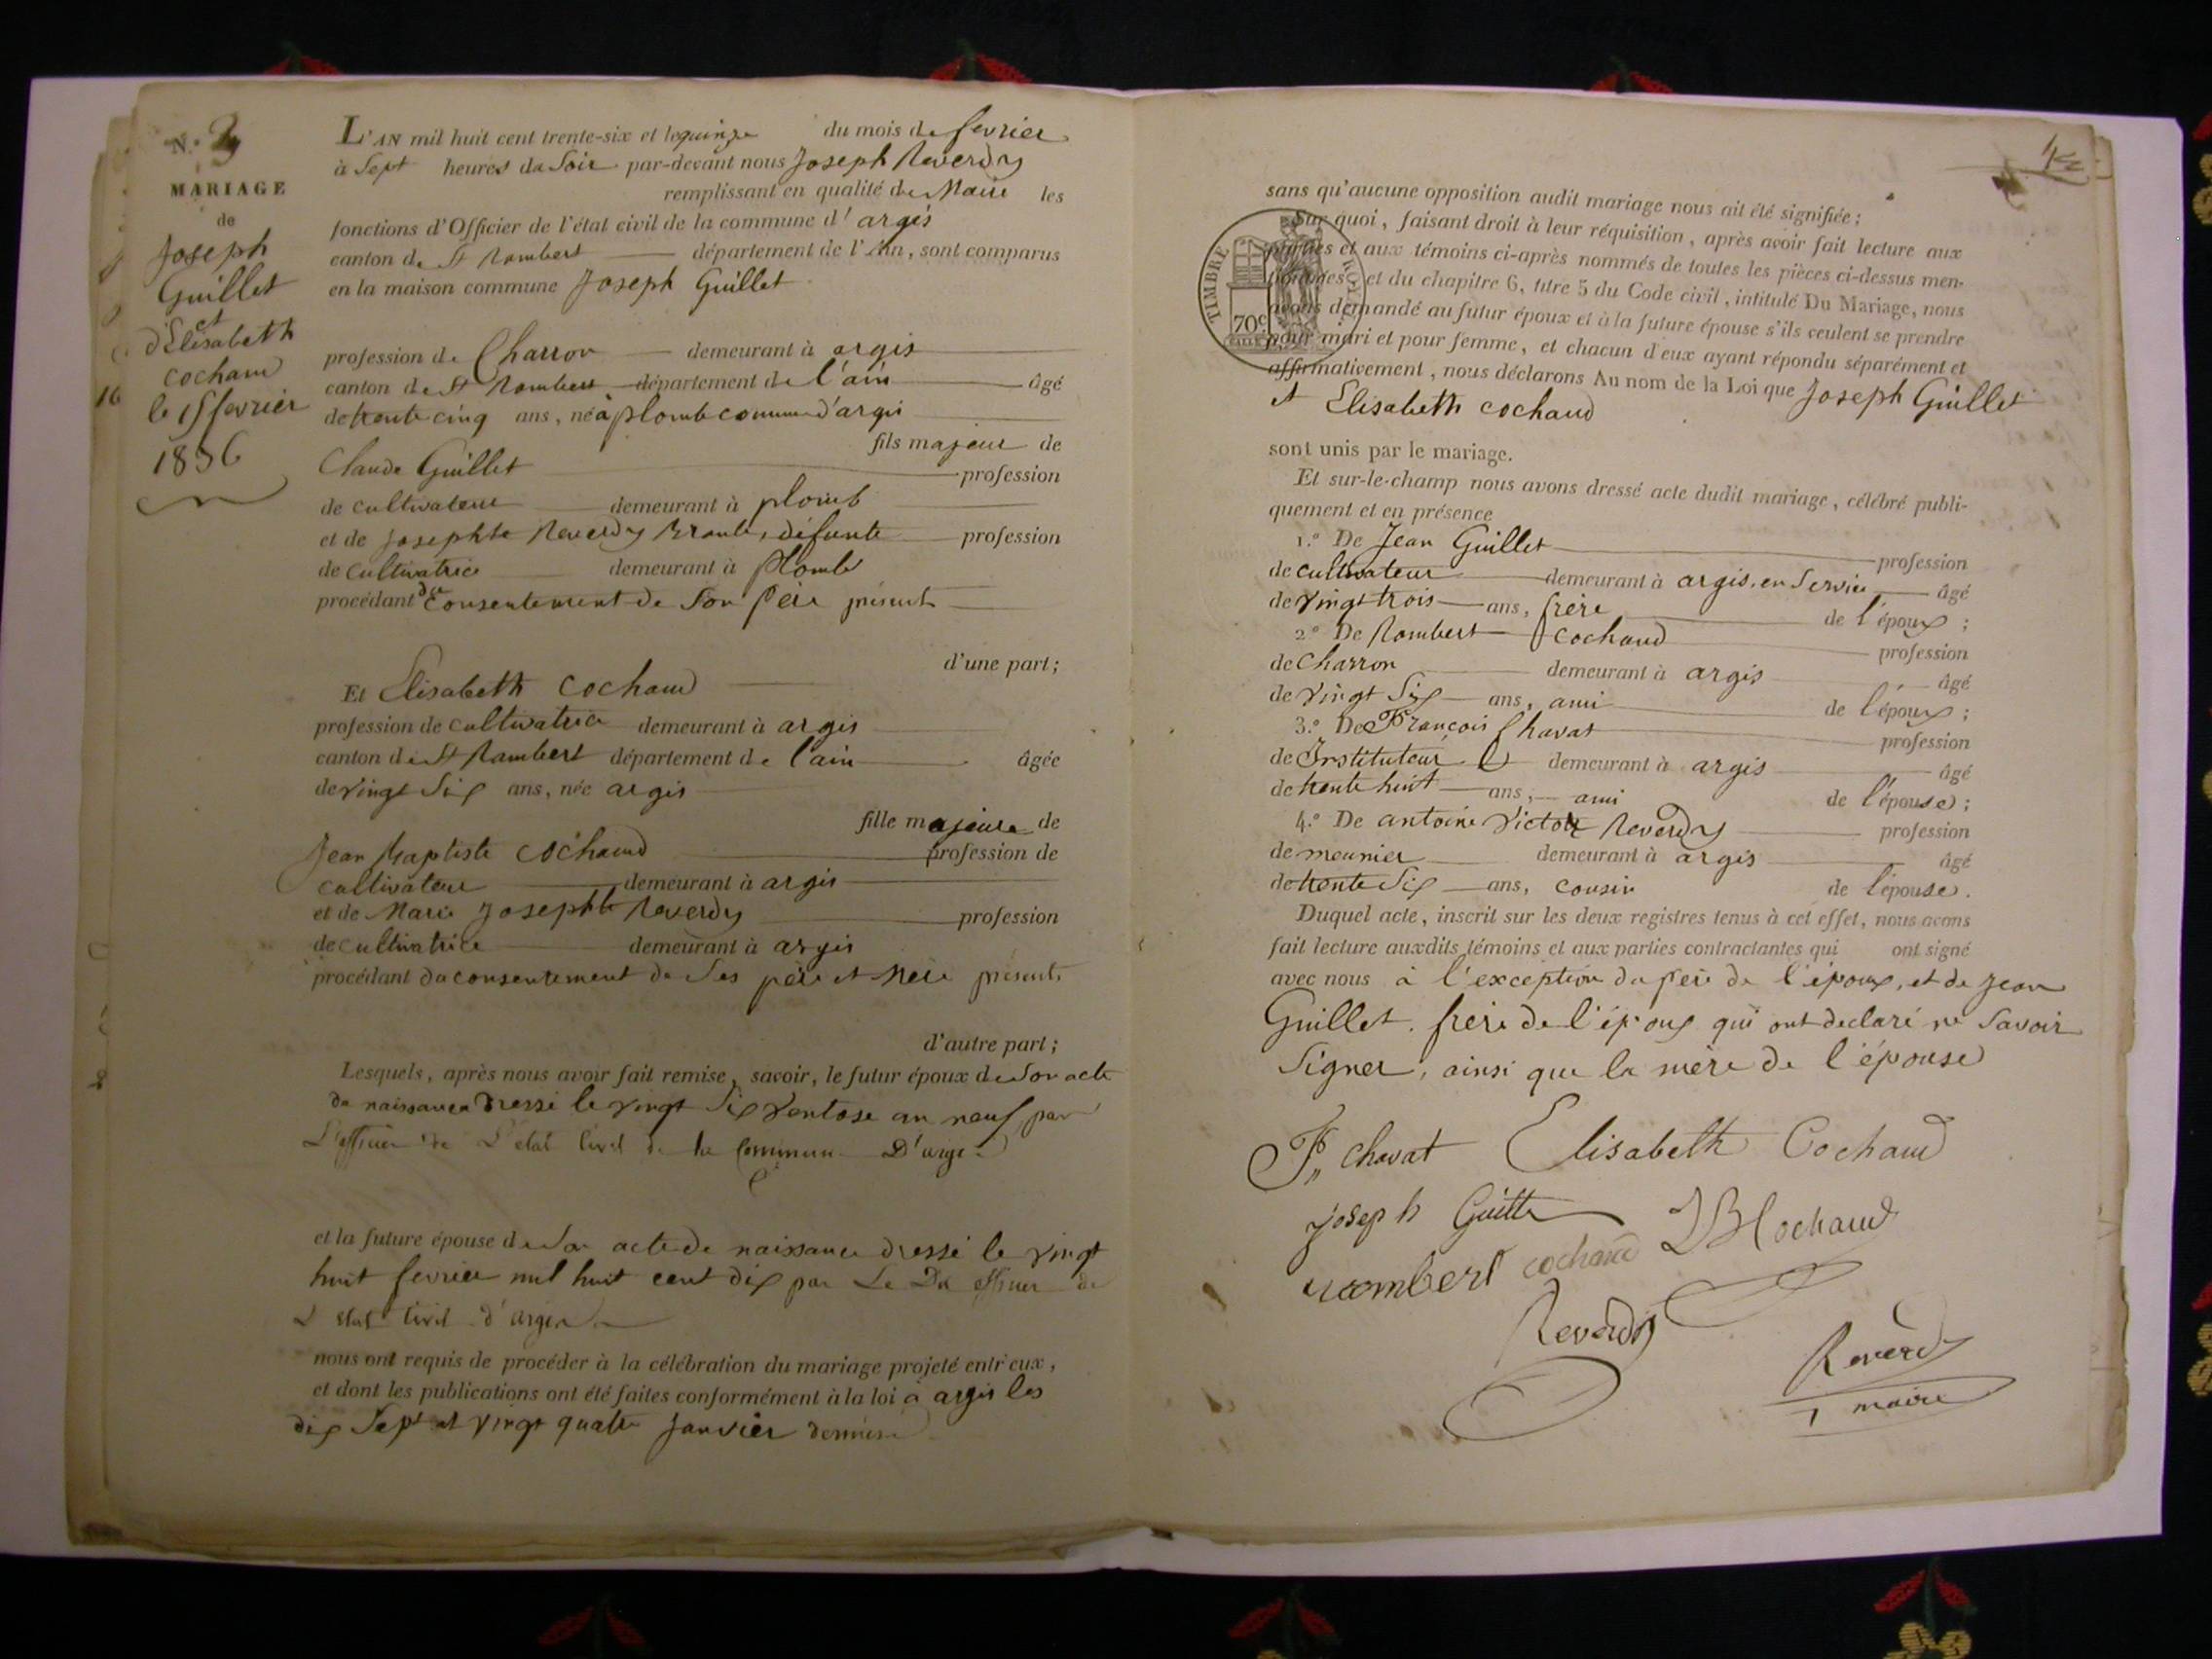 N.º
MARIAGE
de
Joseph
Guillet
et
d'Elisabeth
cochaud
le 15 fevrier
1836
L'AN mil huit cent trente-six et le quinze du mois de fevrier
à Sept heures du Soir par-devant nous Joseph Reverdy
remplissant en qualité de Maire les
fonctions d'Officier de l'état civil de la commune d'argis
canton de St Rambert département de l'Ain, sont comparus
en la maison commune Joseph Guillet
profession de Charron demeurant à argis
canton de St Rambert département de l'ain âgé
de trente cinq ans, né à plomb commune d'argis
fils majeur de
Claude Guillet profession
de cultivateur demeurant à plomb
et de Josephte Reverdy défunte profession
de cultivatrice demeurant à Plomb
procédant du Consentement de Son père présent
d'une part;
Et Elisabeth cochaud
profession de cultivatrice demeurant à argis
canton de St Rambert département de l'ain âgée
de vingt Six ans, née argis
fille majeure de
Jean Baptiste cochaud profession de
cultivateur demeurant à argis
et de Marie Josephte Reverdy profession
de cultivatrice demeurant à argis
procédant du consentement de Ses père et Mère présents
d'autre part;
Lesquels, après nous avoir fait remise, savoir, le futur époux de Son acte
de naissance dressé le vingt Six Ventose an neuf par
L'officier de L'etat Civil de la Commune D'argis
et la future épouse de Son acte de naissance dressé le vingt
huit fevrier mil huit cent dix par Le Dit officier de
L'etat Civil d'argis
nous ont requis de procéder à la célébration du mariage projeté entr'eux,
et dont les publications ont été faites conformément à la loi à argis les
dix Sept et vingt quatre Janvier dernier
sans qu'aucune opposition audit mariage nous ait été signifiée;
Sur quoi, faisant droit à leur réquisition, après avoir fait lecture aux
parties et aux témoins ci-après nommés de toutes les pièces ci-dessus men-
tionnées et du chapitre 6, titre 5 du Code civil, intitulé Du Mariage, nous
avons demandé au futur époux et à la future épouse s'ils veulent se prendre
pour mari et pour femme, et chacun d'eux ayant répondu séparément et
affirmativement, nous déclarons Au nom de la Loi que Joseph Guillet
et Elisabeth cochaud
TIMBRE ROYAL
70c
sont unis par le mariage.
Et sur-le-champ nous avons dressé acte dudit mariage, célébré publi-
quement et en présence
1.º De Jean Guillet profession
de cultivateur demeurant à argis, en Service âgé
de vingt trois ans, frère de l'époux;
2.º De Rambert cochaud profession
de Charron demeurant à argis âgé
de vingt Six ans, ami de l'époux;
3.º De François Chavat profession
de Instituteur demeurant à argis âgé
de trente huit ans, ami de l'épouse;
4.º De antoine Victor Reverdy profession
de meunier demeurant à argis âgé
de trente Six ans, cousin de l'épouse.
Duquel acte, inscrit sur les deux registres tenus à cet effet, nous avons
fait lecture auxdits témoins et aux parties contractantes qui ont signé
avec nous à l'exception du père de l'époux, et de Jean
Guillet. frère de l'époux qui ont declaré ne Savoir
Signer, ainsi que la mère de l'épouse
F" Chavat Elisabeth Cochaud
joseph Guitte JB Cochaud
rambert cochaud
Reverdy
Reverdy
maire